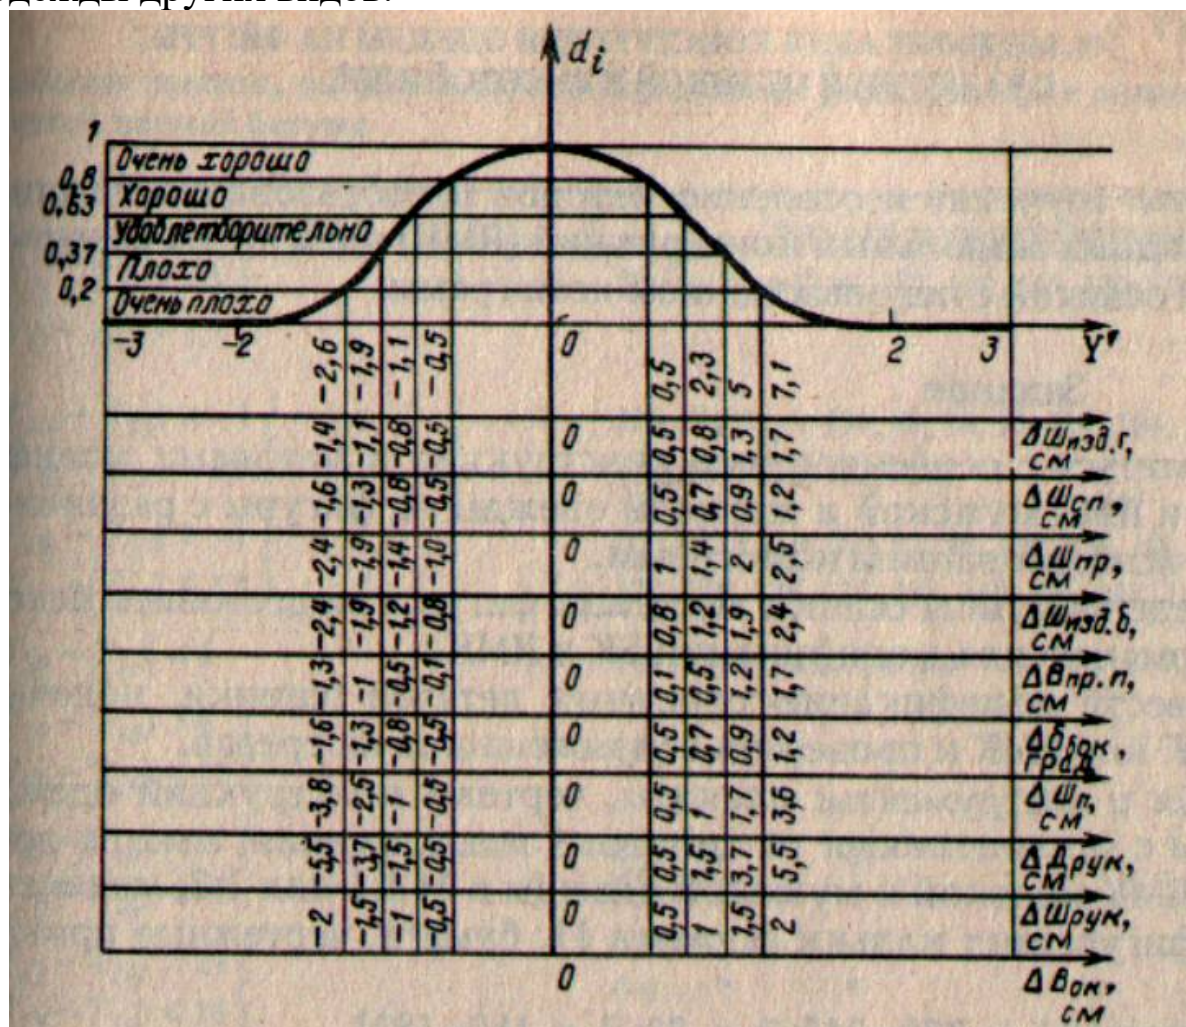 одежды других видов.
di
1
Очень хорошо
0,8
Хорошо
0,63
Удовлетворительно
0,37
Плохо
0,2
Очень плохо
-3 -2 0 2 3 Y'
-2,6 -1,9 -1,1 -0,5 0,5 2,3 5 7,1
-1,4 -1,1 -0,8 -0,5 0 0,5 0,8 1,3 1,7 ΔШизд.г,
см
-1,6 -1,3 -0,8 -0,5 0 0,5 0,7 0,9 1,2 ΔШсп,
см
-2,4 -1,9 -1,4 -1,0 0 1 1,4 2 2,5 ΔШпр,
см
-2,4 -1,9 -1,2 -0,8 0 0,8 1,2 1,9 2,4 ΔШизд.б,
см
-1,3 -1 -0,5 -0,1 0 0,1 0,5 1,2 1,7 ΔВпр.п,
см
-1,6 -1,3 -0,8 -0,5 0 0,5 0,7 0,9 1,2 Δббок,
град
-3,8 -2,5 -1 -0,5 0 0,5 1 1,7 3,6 ΔШп,
см
-5,5 -3,7 -1,5 -0,5 0 0,5 1,5 3,7 5,5 ΔДрук,
см
-2 -1,5 -1 -0,5 0 0,5 1 1,5 2 ΔШрук,
см
0 ΔВок,
см